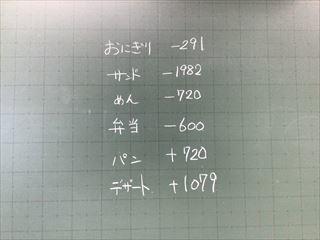 おにぎり -291
サンド -1982
めん -720
弁当 -600
パン +720
デザート +1079